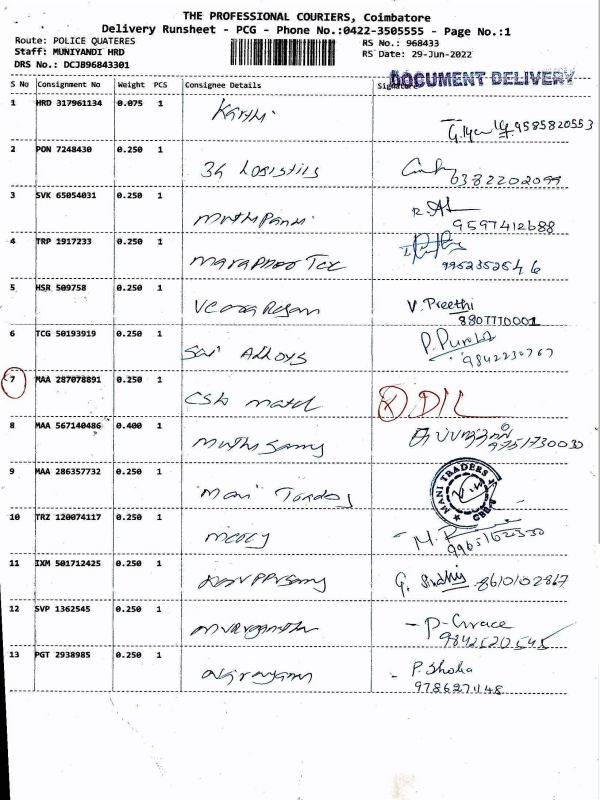 THE PROFESSIONAL COURIERS, Coimbatore
Delivery Runsheet - PCG - Phone No.:0422-3505555 - Page No.:1
Route: POLICE QUATERES RS No.: 968433
Staff: MUNIYANDI HRD RS Date: 29-Jun-2022
DRS No.: DCJB96843301
DOCUMENT DELIVERY
S No Consignment No Weight PCS Consignee Details Signature
1 HRD 317961134 0.075 1
9585820553
2 PON 7248430 0.250 1
3G Logistics
6382202099
3 SVK 65054031 0.250 1
9597412688
4 TRP 1917233 0.250 1
9952352546
5 HSR 509758 0.250 1
V. Preethi
8807770001
6 TCG 50193919 0.250 1
Sai Alloys
9842230767
7 MAA 287078891 0.250 1
D/L
8 MAA 567140486 0.400 1
Muthu Samy
9751730030
9 MAA 286357732 0.250 1
Mani Traders
MANI TRADERS
10 TRZ 120074117 0.250 1
9965162330
11 IXM 501712425 0.250 1
8610102867
12 SVP 1362545 0.250 1
- P-Grace
9842520545
13 PGT 2938985 0.250 1
- P. Shoba